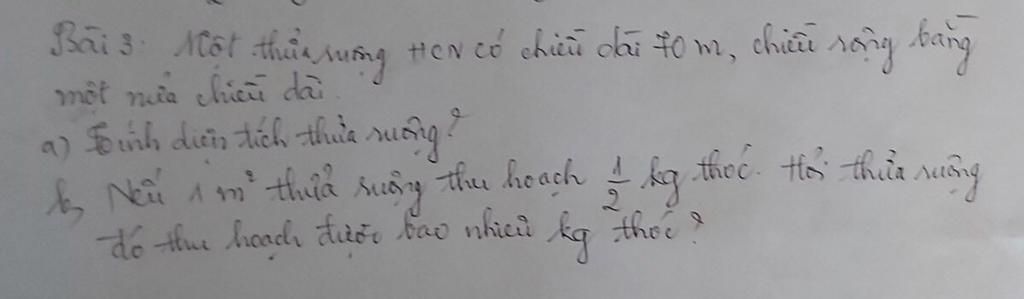 Bài 3: Một thửa ruộng HCN có chiều dài 70 m, chiều rộng bằng
một nửa chiều dài.
a) Tính diện tích thửa ruộng?
b, Nếu 1 m² thửa ruộng thu hoạch 1/2 kg thóc. Hỏi thửa ruộng
đó thu hoạch được bao nhiêu kg thóc?